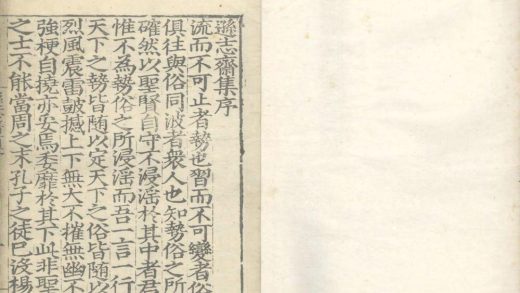 遜志齋集序
流而不可止者勢也習而不可變者俗
俱往與俗同波者衆人也知勢俗之所
確然以聖賢自守不浸滛於其中者君
惟不為勢俗之所浸滛而吾一言一行
天下之勢皆随以定天下之俗皆随以
烈風震雷皷撼上下無大不摧無幽不
強梗自撓亦安焉委靡於其下此非聖
之士不能當周之末孔子之徒已沒楊